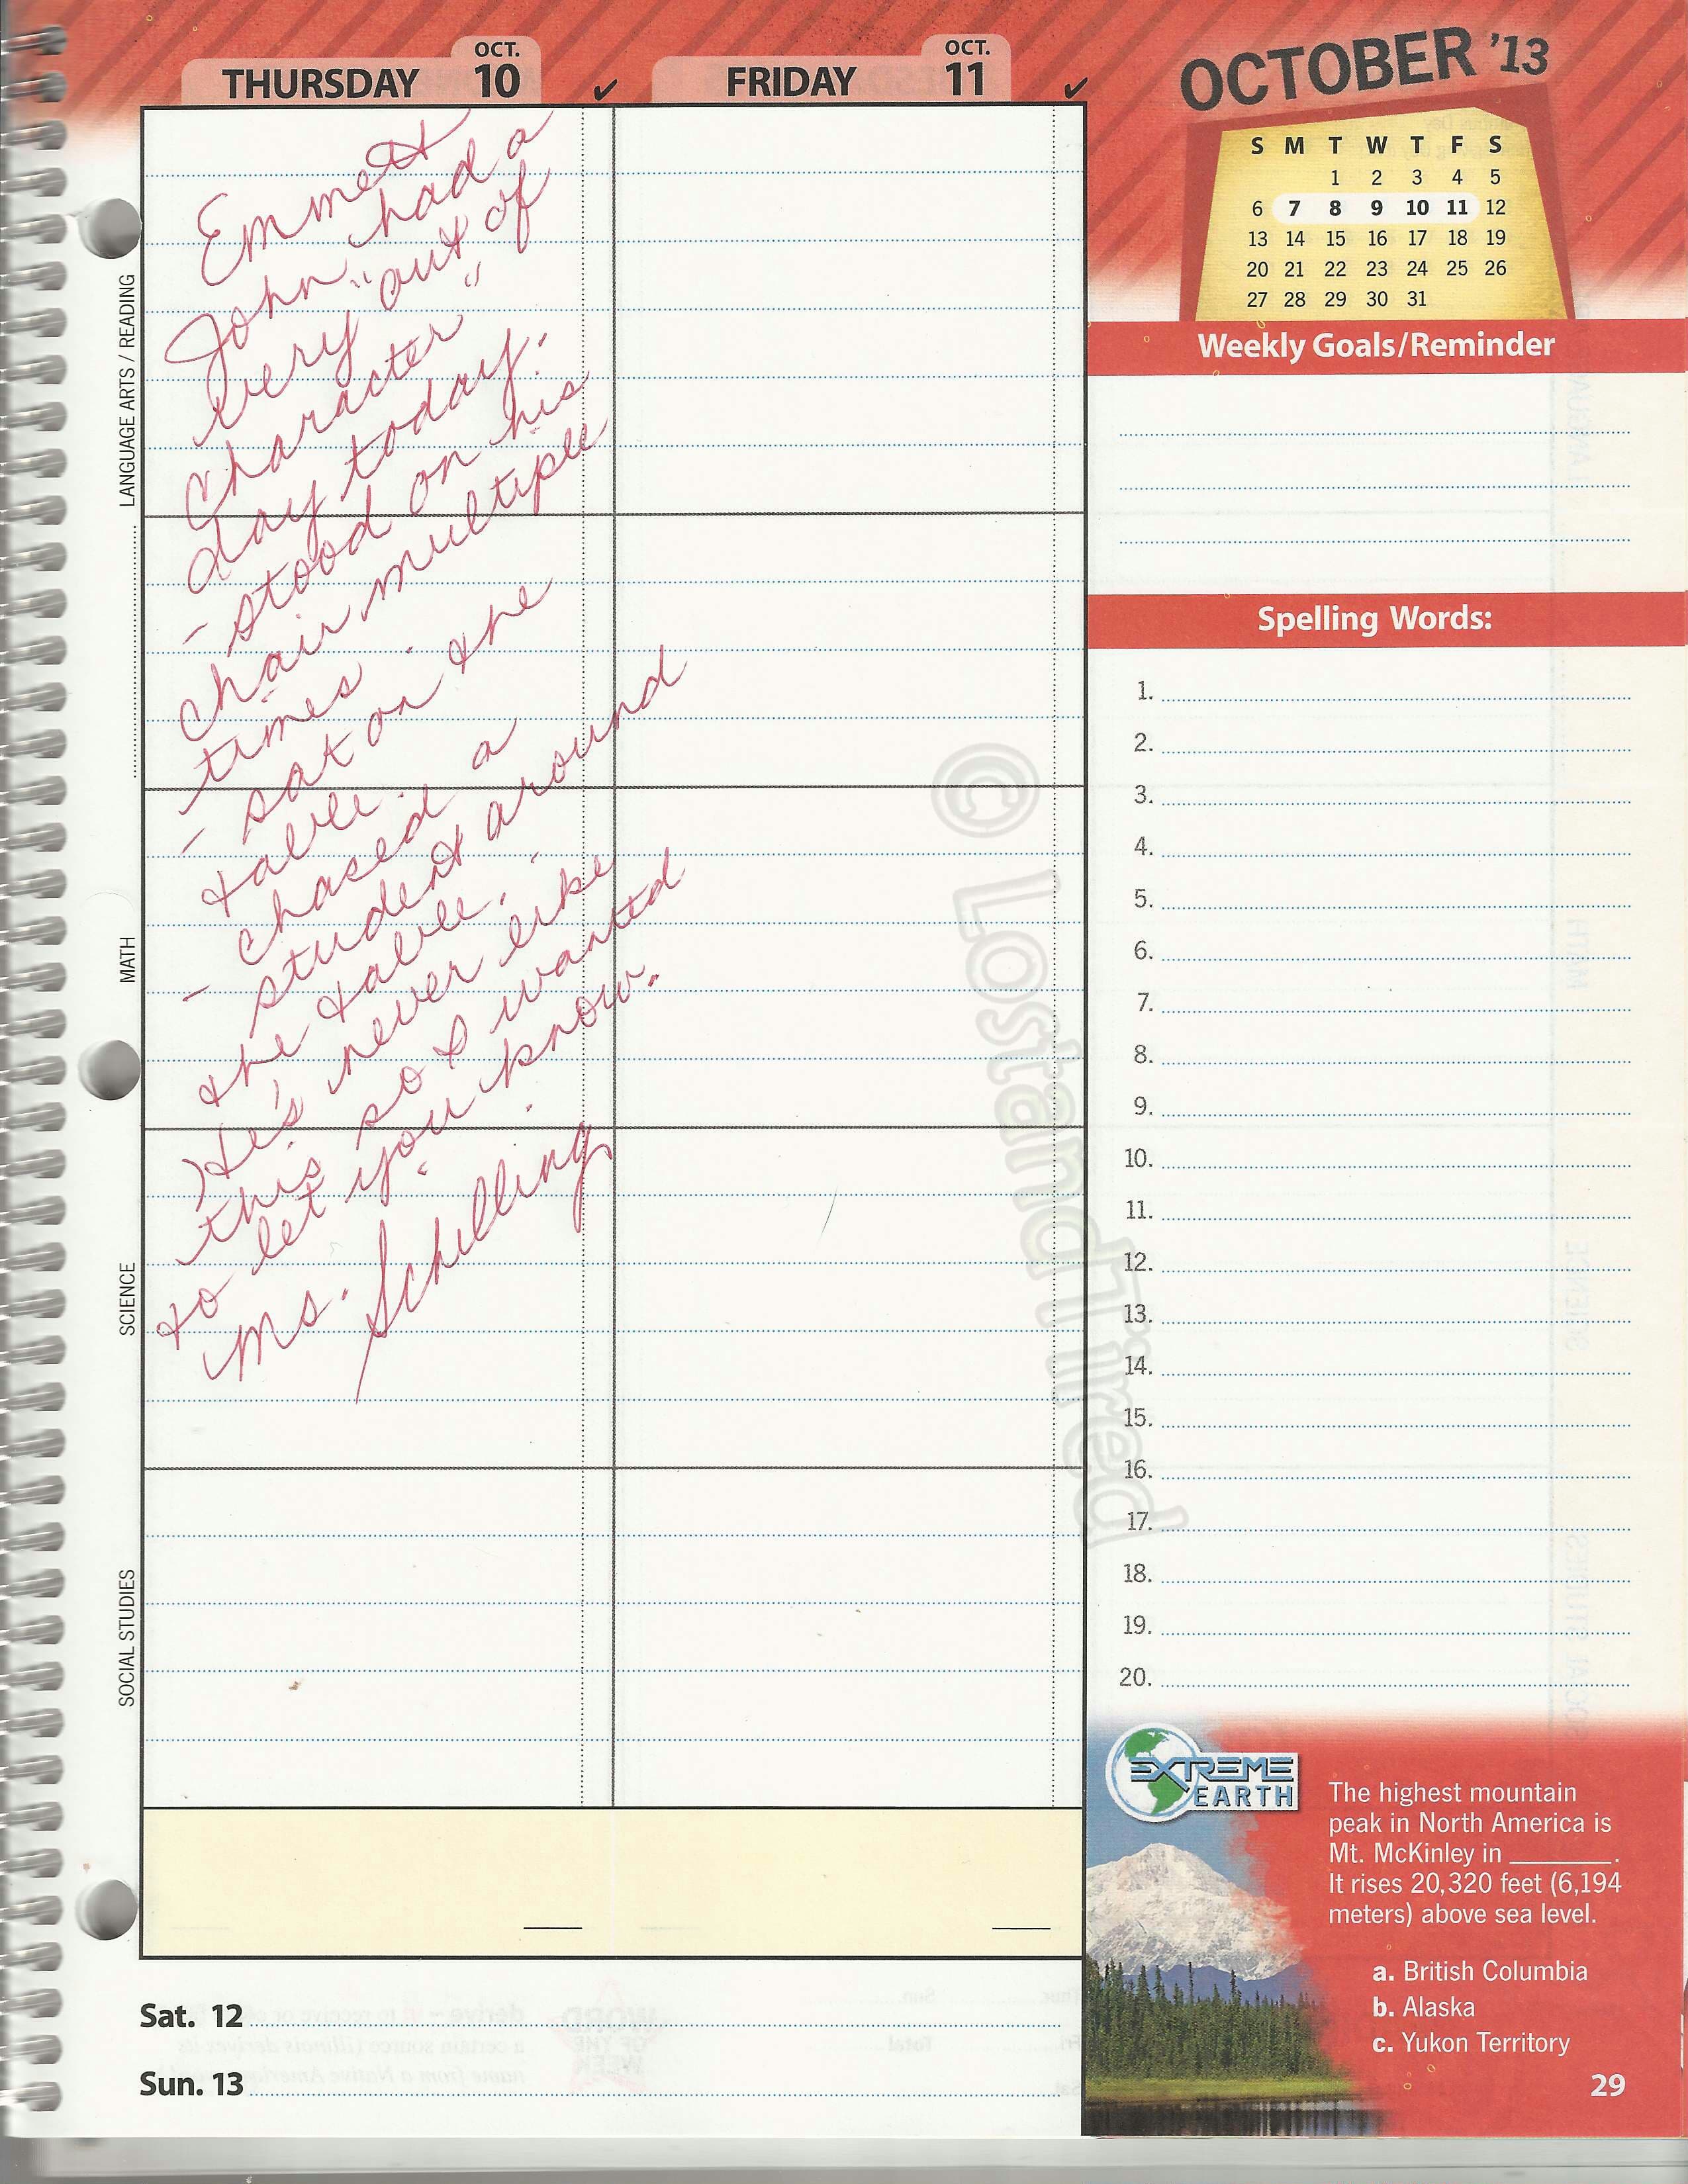 THURSDAY OCT. 10 ✓
FRIDAY OCT. 11 ✓
OCTOBER '13
S M T W T F S
1 2 3 4 5
6 7 8 9 10 11 12
13 14 15 16 17 18 19
20 21 22 23 24 25 26
27 28 29 30 31
LANGUAGE ARTS / READING
MATH
SCIENCE
SOCIAL STUDIES
Emmett
John had a
very "out of
character"
day today.
- stood on his
chair multiple
times.
- sat on the
table.
- chased a
student around
the table.
He's never like
this so I wanted
to let you know.
Ms. Schilling
Weekly Goals/Reminder
Spelling Words:
1.
2.
3.
4.
5.
6.
7.
8.
9.
10.
11.
12.
13.
14.
15.
16.
17.
18.
19.
20.
© LostandTired
EXTREME
EARTH
The highest mountain
peak in North America is
Mt. McKinley in ________.
It rises 20,320 feet (6,194
meters) above sea level.
a. British Columbia
b. Alaska
c. Yukon Territory
Sat. 12
Sun. 13
29